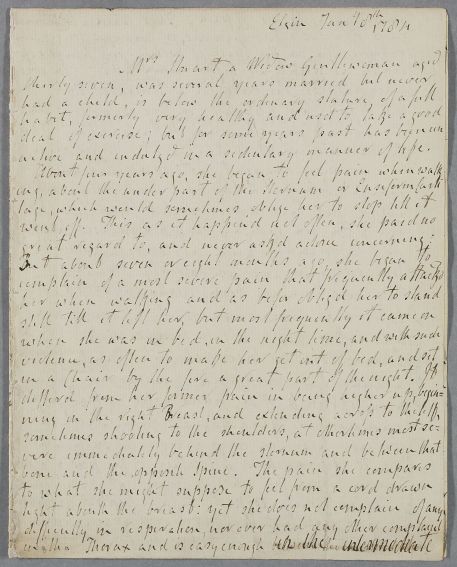 Elgin Jan 18th 1784
Mrs Stuart a Widow Gentlewoman aged
thirty seven, was several years married but never
had a child, is below the ordinary stature, of a full
habit, formerly very healthy and used to take a good
deal of exercise; but for some years past has been in
active and indulged in a sedentary manner of life.
About four years ago, she began to feel pain when walk
ing, about the under part of the sternum or Ensiform Carti
lage, which would sometimes oblige her to stop till it
went off. This as it happened not often, she paid no
great regard to, and never asked advice concerning.
But about seven or eight months ago, she began to
complain of a most severe pain that frequently attack'd
her when walking and as befor obliged her to stand
still till it left her, but most frequently it came on
when she was in bed, in the night time, and with such
violence, as often to make her get out of bed, and sit
in a Chair by the fire a great part of the night. It
differed from her former pain in being higher up, begin-
ning in the right Breast, and extending across to the left,
sometimes shooting to the shoulders, at other times most se-
vere immediately behind the sternum and between that
bone and the opposite spine. The pain she compares
to what she might suppose to feel from a cord drawn
tight about the breast: yet she does not complain of any
difficulty in respiration, nor ever had any other complaint
in the Thorax and is easy enough in the intermediate